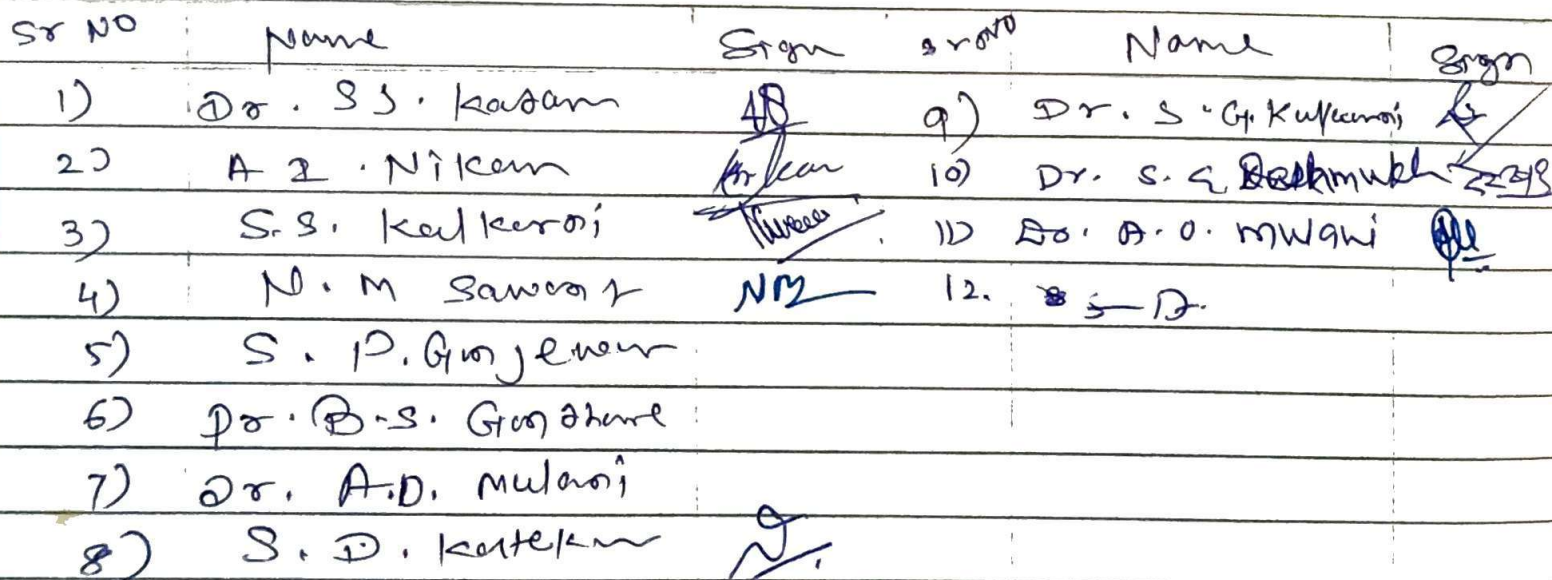 Sr NO Name Sign Sr NO Name Sign
1) Dr. S S. Kadam 9) Dr. S. G. Kulkarni
2) A R. Nikam 10) Dr. S. G Deshmukh
3) S. S. Kalkarni 11) Dr. A. D. Mulani
4) N. M Sawant NM 12. S D.
5) S. P. Gunjewar
6) Dr. B. S. Gundhare
7) Dr. A.D. Mulani
8) S. D. Katekar